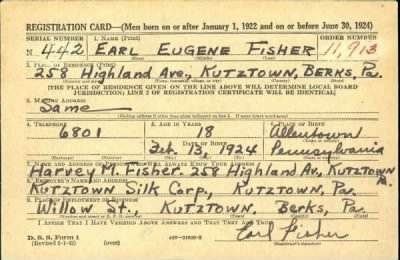 REGISTRATION CARD—(Men born on or after January 1, 1922 and on or before June 30, 1924)
SERIAL NUMBER 1. NAME (Print) ORDER NUMBER
N 442 EARL EUGENE FISHER 11,913
(First) (Middle) (Last)
2. PLACE OF RESIDENCE (Print)
258 Highland Ave., KUTZTOWN, BERKS, Pa.
[THE PLACE OF RESIDENCE GIVEN ON THE LINE ABOVE WILL DETERMINE LOCAL BOARD
JURISDICTION; LINE 2 OF REGISTRATION CERTIFICATE WILL BE IDENTICAL]
3. MAILING ADDRESS
Same
4. TELEPHONE 5. AGE IN YEARS 6. PLACE OF BIRTH
6801 18 Allentown
DATE OF BIRTH
Feb. 13, 1924 Pennsylvania
7. NAME AND ADDRESS OF PERSON WHO WILL ALWAYS KNOW YOUR ADDRESS
Harvey M. Fisher. 258 Highland Av., KUTZTOWN Pa.
8. EMPLOYER'S NAME AND ADDRESS
KUTZTOWN Silk Corp., Kutztown, Pa.
9. PLACE OF EMPLOYMENT OR BUSINESS
Willow St., KUTZTOWN, Berks, Pa.
I AFFIRM THAT I HAVE VERIFIED ABOVE ANSWERS AND THAT THEY ARE TRUE.
D. S. S. Form 1 Earl Fisher
(over) (Registrant's signature)